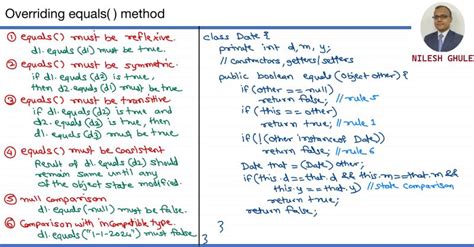 Overriding equals( ) method
① equals() must be reflexive.
d1.equals(d1) must be true.
② equals() must be symmetric.
if d1.equals(d2) is true,
then d2.equals(d1) must be true
③ equals() must be transitive
if d1.equals(d2) is true and
d2.equals(d3) is true, then
d1.equals(d3) must be true.
④ equals() must be consistent
Result of d1.equals(d2) should
remain same until any
of the object state modified.
⑤ null comparison
d1.equals(null) must be false.
⑥ Comparison with incompatible type.
d1.equals("1-1-2024") must false
class Date {
private int d, m, y;
// constructors, getters/setters
public boolean equals(Object other) {
if(other == null)
return false; // rule 5
if(this == other)
return true; // rule 1
if(!(other instanceof Date))
return false; // rule 6
Date that = (Date) other;
if(this.d==that.d && this.m==that.m &&
this.y == that.y) // state comparison
return true;
return false;
}
}
NILESH GHULE